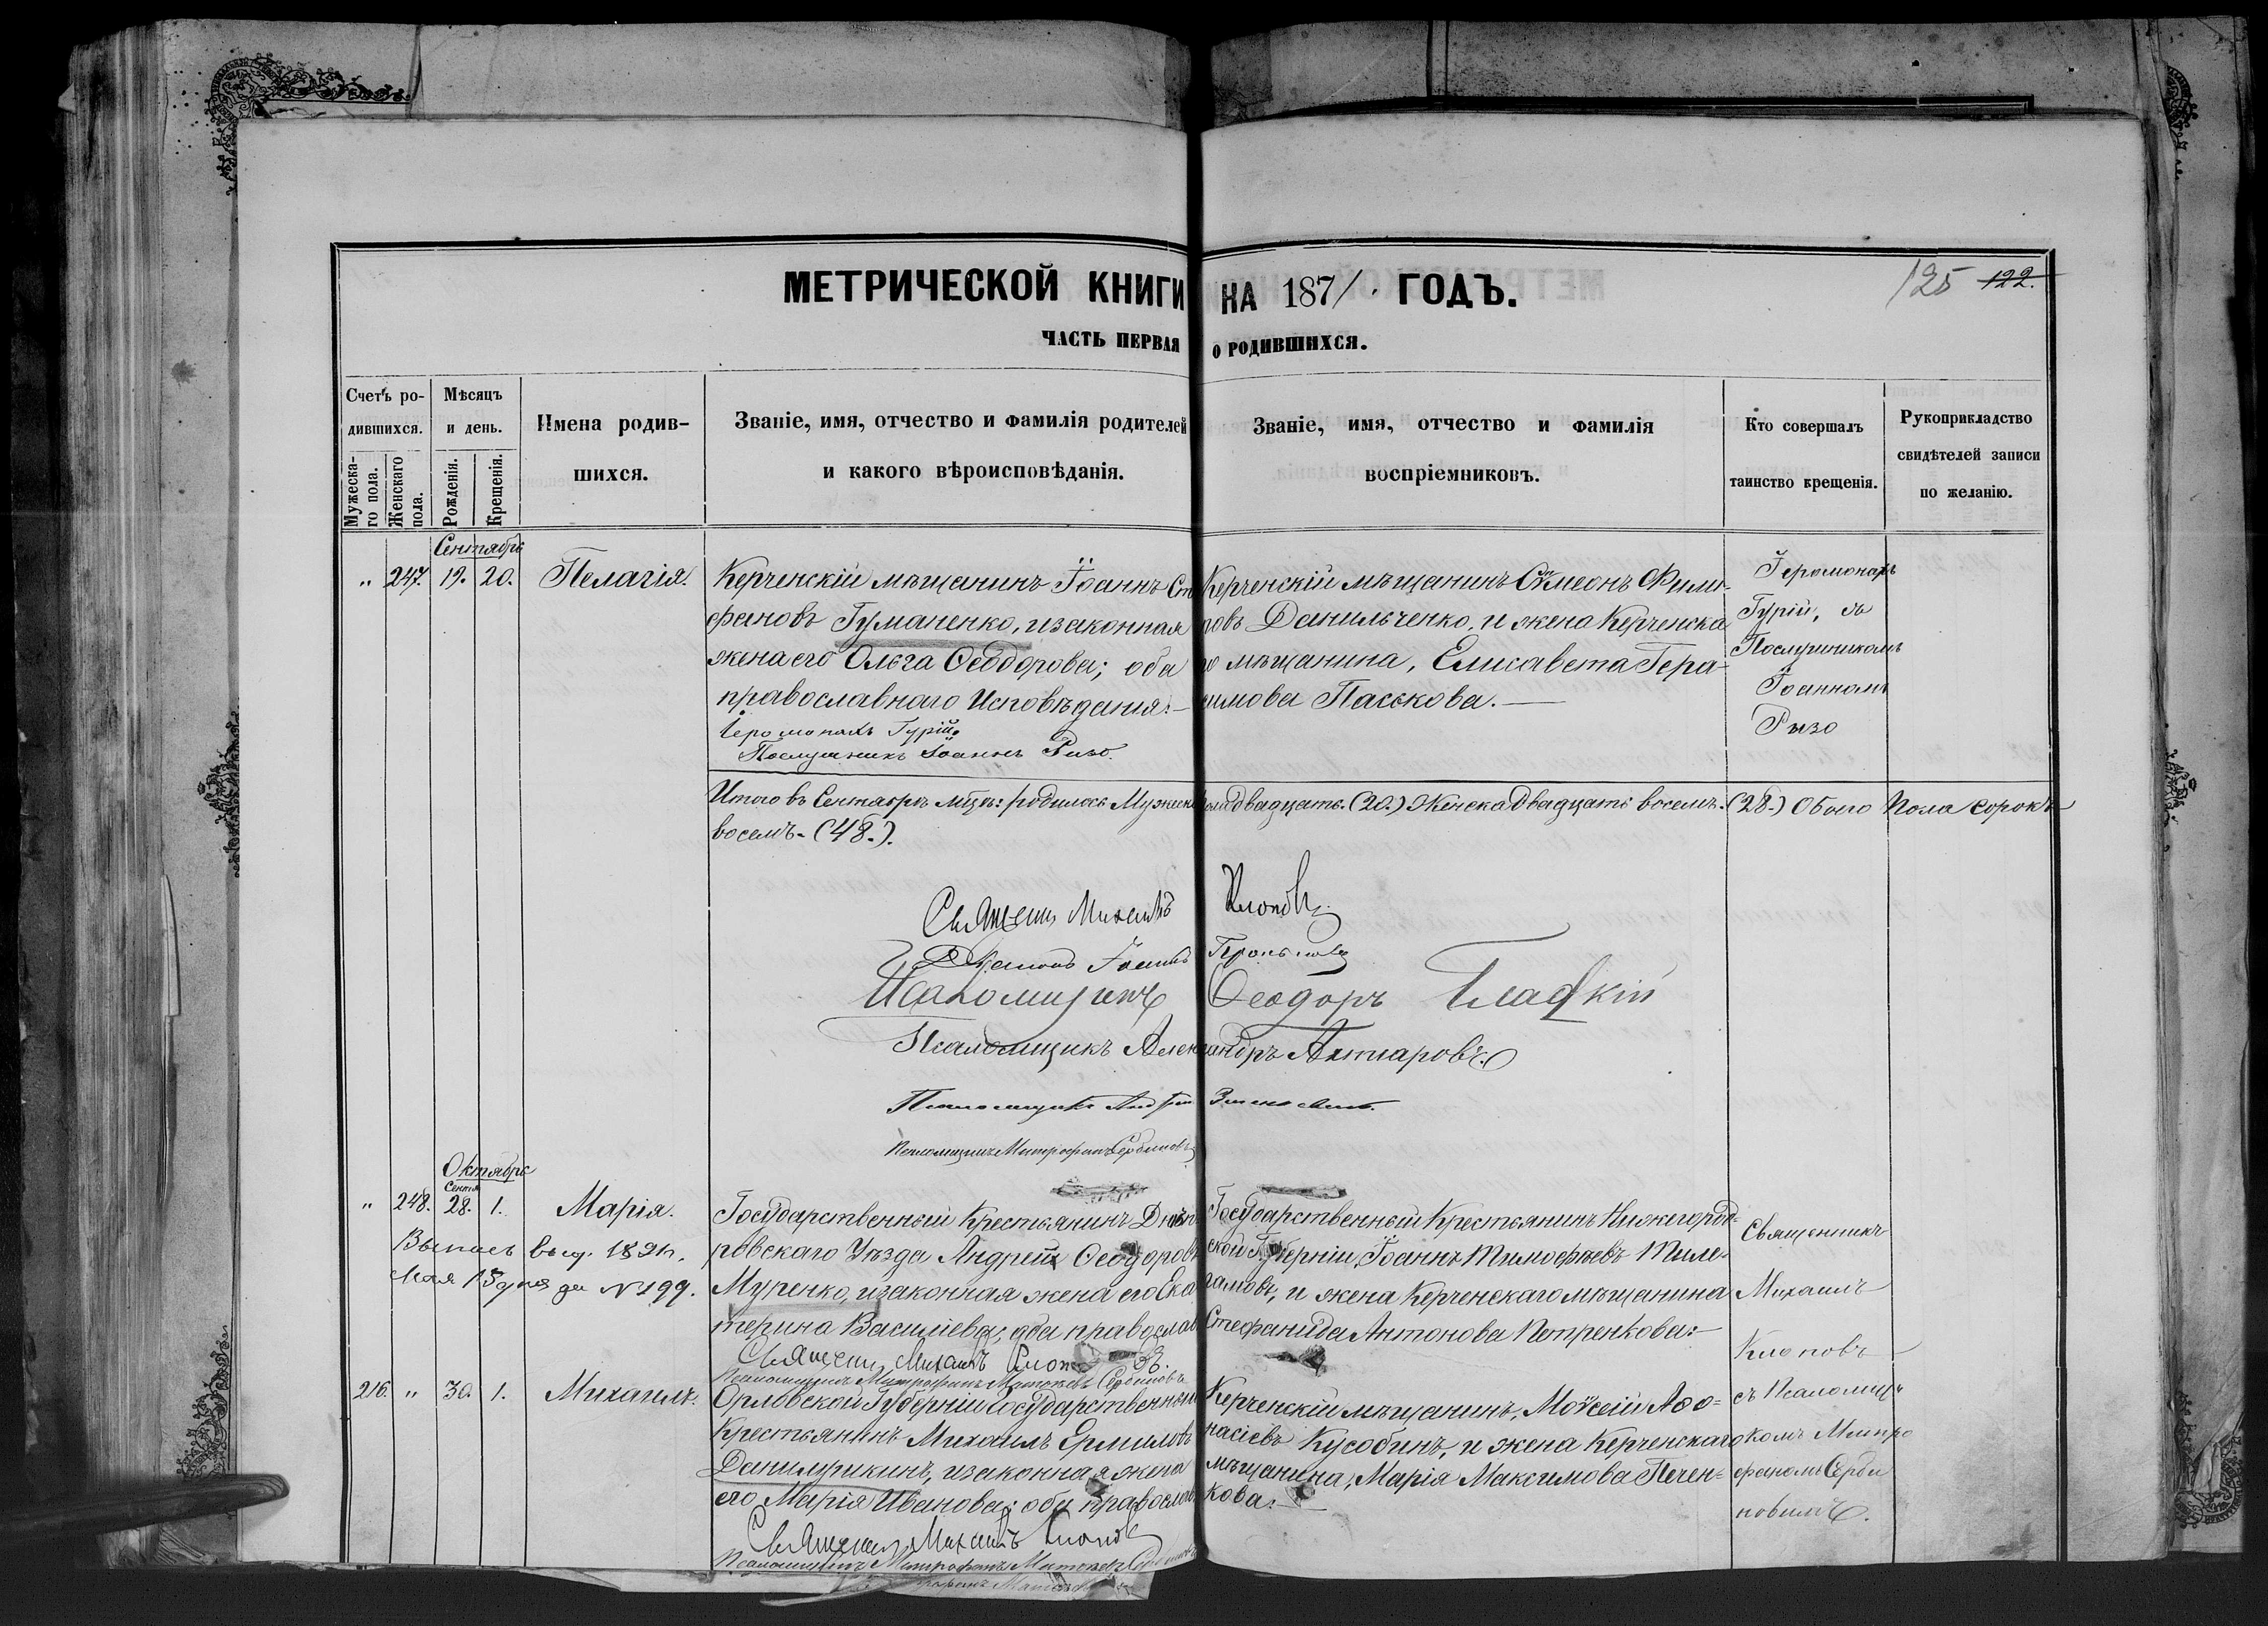 МЕТРИЧЕСКОЙ КНИГИ НА 1871. ГОДЪ.
125 122.
ЧАСТЬ ПЕРВАЯ О РОДИВШИХСЯ.
Счетъ родившихся.
Мужеска-го пола.
Женскаго пола.
Мѣсяцъ и день.
Рожденія.
Крещенія.
Имена родив-
шихся.
Званіе, имя, отчество и фамилія родителей
и какого вѣроисповѣданія.
Званіе, имя, отчество и фамилія
воспріемниковъ.
Кто совершалъ
таинство крещенія.
Рукоприкладство
свидѣтелей записи
по желанію.
Сентябрь
" 247. 19. 20. Пелагія.
Керченскій мѣщанинъ Іоаннъ Сте
фановъ Гуманенко, и законная
жена его Ольга Ѳеодорова; оба
православнаго Исповѣданія.—
Іеромонахъ Гурій
Послушникъ Іоаннъ Ризо.
Керченскій мѣщанинъ Симеонъ Филип-
повъ Данильченко, и жена Керченска
го мѣщанина, Елисавета Гера-
симова Паськова.—
Іеромонахъ
Гурій, съ
Послушникомъ
Іоанномъ
Ризо
Итого въ Сентябрѣ мцѣ: родилось Мужеска пола двадцать. (20.) Женска двадцать восемь. (28.) Обоего Пола сорокъ
восемь. (48.).
Священ. Михаилъ Клоповъ
Діаконъ Іоаннъ
Псаломщикъ Ѳеодоръ Гладкій
Псаломщикъ Александръ Ахтіаровъ
Псаломщикъ Андрей
Псаломщикъ Митрофанъ Сербиновъ
Октябрь
Сентя
" 248. 28. 1. Марія.
Выпись выд. 1891г.
Мая 15 дня за № 199.
Государственный Крестьянинъ Днѣп
ровскаго Уѣзда Андрей Ѳеодоровъ
Муренко, и законная жена его Ека
терина Васильева; оба православ
Священ. Михаилъ Клоповъ
Псаломщикъ Митрофанъ Сербиновъ
Государственный Крестьянинъ Нижегород-
ской Губерніи, Іоаннъ Тимофѣевъ
и жена Керченскаго мѣщанина
Стефанида Антонова Петренкова:—
Священникъ
Михаилъ
Клоповъ
съ Псаломщи
комъ Митро
фаномъ Серби
новымъ.
216. " 30. 1. Михаилъ.
Орловской Губерніи Государственный
Крестьянинъ Михаилъ Ермиловъ
Данилушкинъ, и законная жена
его Марія Иванова; оба православ
Священ. Михаилъ Клоповъ
Псаломщикъ Митрофанъ
Керченскій мѣщанинъ, Моѵсей Аѳа-
насіевъ Кусобинъ, и жена Керченскаго
мѣщанина, Марія Максимова Печен-
кова.—